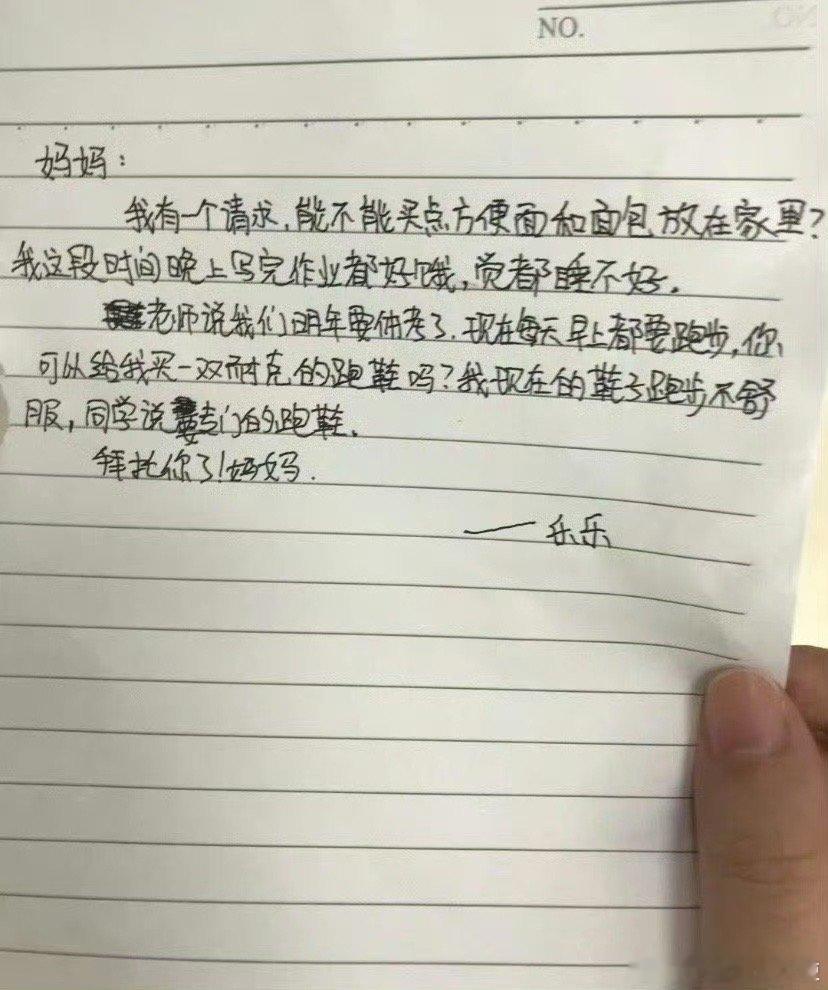 NO.
妈妈：
我有一个请求，能不能买点方便面和面包放在家里？
我这段时间晚上写完作业都好饿，觉都睡不好。
老师说我们明年要体考了，现在每天早上都要跑步，你
可以给我买一双耐克的跑鞋吗？我现在的鞋子跑步不舒
服，同学说要专门的跑鞋。
拜托你了！妈妈.
——乐乐